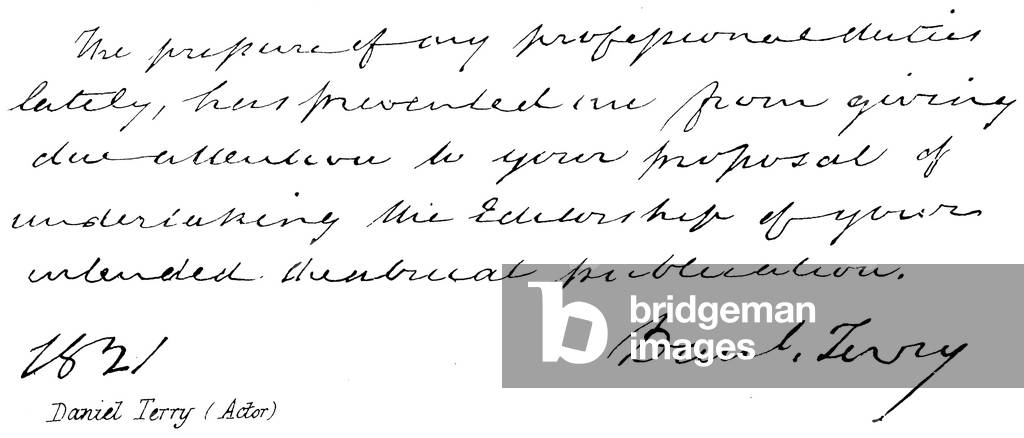 The pressure of my professional duties
lately, has prevented me from giving
due attention to your proposal of
undertaking the Editorship of your
intended theatrical publication.
b
bridgeman
images
1821
Danl. Terry
Daniel Terry (Actor)